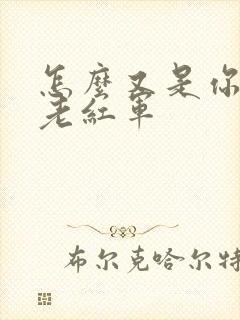 怎麼又是你
老紅軍
布尔克哈尔特